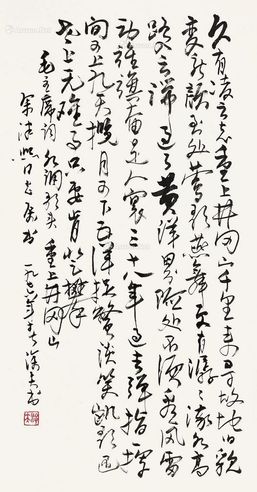 久有凌云志重上井冈山千里来寻故地旧貌
变新颜到处莺歌燕舞更有潺潺流水高
路入云端过了黄洋界险处不须看风雷
动旌旗奋是人寰三十八年过去弹指一挥
间可上九天揽月可下五洋捉鳖谈笑凯歌还
世上无难事只要肯登攀
毛主席词水调歌头重上井冈山
同志属书
一九七六年